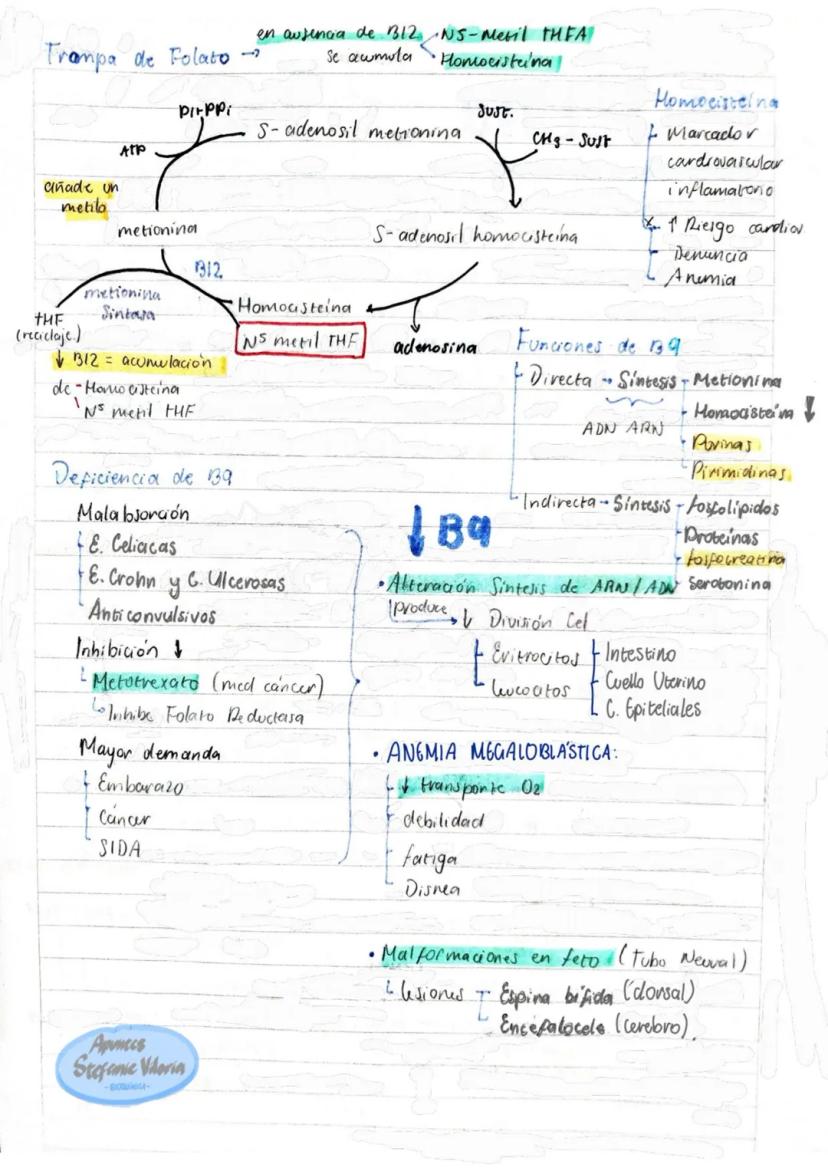 Trampa de Folato → en ausencia de B12 N5-Metil THFA
se acumula Homocisteína
Pi+PPi
ATP
S-adenosil metionina
SUST.
CH3-SUST
añade un
metilo
metionina
S-adenosil homocisteína
B12
metionina
Sintasa
Homocisteína
THF
(reciclaje)
N5 metil THF
adenosina
↓ B12 = acumulación
de - Homocisteína
N5 metil THF
Homocisteína
Marcador
cardiovascular
inflamatorio
↑ Riesgo cardiov
Demencia
Anemia
Funciones de B9
Directa → Síntesis - Metionina
ADN ARN
Homocisteína ↓
Purinas
Pirimidinas
Indirecta → Síntesis - fosfolípidos
Proteínas
fosfocreatina
Serotonina
Deficiencia de B9
Malabsorción
E. Celiacas
E. Crohn y C. Ulcerosas
Anticonvulsivos
Inhibición ↓
Metotrexato (med cáncer)
Inhibe Folato Reductasa
Mayor demanda
Embarazo
Cáncer
SIDA
↓ B9
• Alteración Síntesis de ARN/ADN
produce → ↓ División Cel
Eritrocitos
Leucocitos
Intestino
Cuello Uterino
C. Epiteliales
• ANEMIA MEGALOBLÁSTICA:
↓ transporte O2
debilidad
fatiga
Disnea
• Malformaciones en feto (Tubo Neural)
lesiones
Espina bífida (dorsal)
Encefalocele (cerebro).
Apuntes
Stefanie Viloria